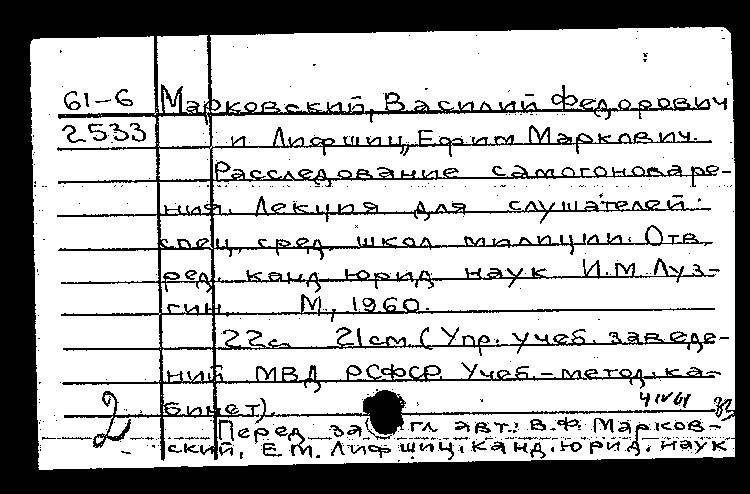 61-6 Марковский, Василий Федорович
2533 и Лифшиц, Ефим Маркович.
Расследование самогоноваре-
ния. Лекция для слушателей
спец. сред. школ милиции. Отв.
ред. канд юрид наук И.М Луз-
гин. М., 1960.
22с. 21см. (Упр. учеб. заведе-
ний МВД РСФСР. Учеб.-метод. ка-
бинет).
Перед загл авт: В.Ф. Марков-
2 ский, Е.М. Лифшиц, канд. юрид. наук